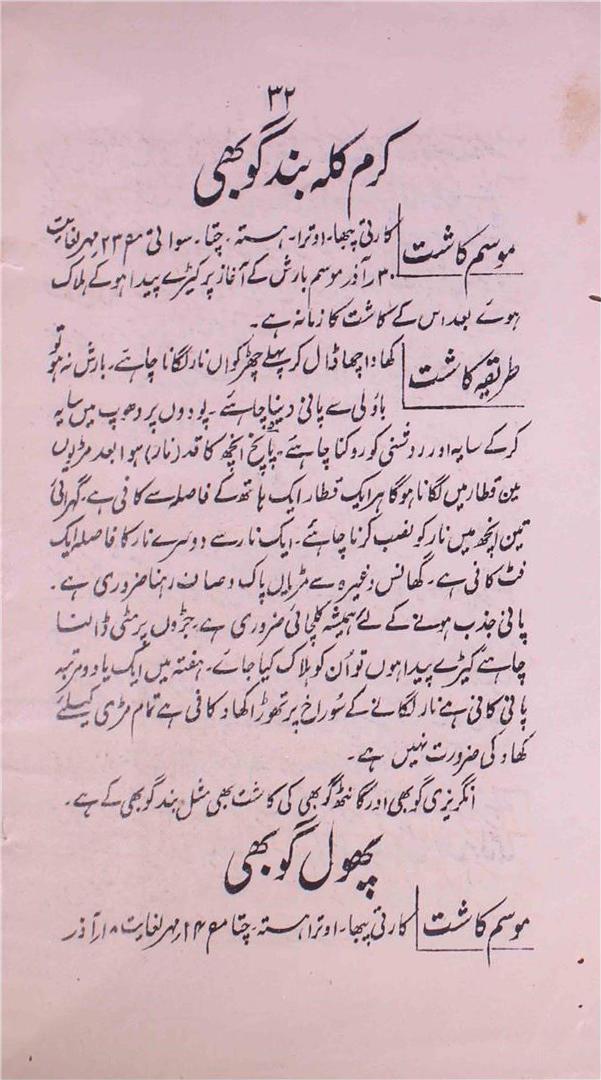 ۳۲
کرم کلہ بند گوبھی
موسم کاشت کارتی پبھا۔ اوترا۔ ہستہ۔ چتا۔ سواتی م ۲۳؍ مہر لغایت
۳۰؍ آذر موسم بارش کے آغاز پر کیڑے پیدا ہو کے ہلاک
ہوے بعد اس کے کاشت کا زمانہ ہے۔
طریقہ کاشت کھاد اچھا ڈال کر پہلے چھڑکواں نار لگانا چاہئے۔ بارش نہ ہو تو
باؤلی سے پانی دینا چاہئے۔ پودوں پر دھوپ میں سایہ
کر کے سایہ اور روشنی کو روکنا چاہئے۔ پانچ انچھ کا قد (نار) ہوا بعد مڑیوں
مین قطار میں لگانا ہوگا ہر ایک قطار ایک ہاتھ کے فاصلہ سے کافی ہے۔ گہرائی
تین انچھ میں نار کو نصب کرنا چاہئے۔ ایک نار سے دوسرے نار کا فاصلہ ایک
فٹ کافی ہے۔ گھانس وغیرہ سے مڑیاں پاک و صاف رہنا ضروری ہے۔
پانی جذب ہونے کے لئے ہمیشہ کلچائی ضروری ہے۔ جڑوں پر مٹی ڈالنا
چاہئے کیڑے پیدا ہوں تو اُن کو ہلاک کیا جائے۔ ہفتہ میں ایک یا دو مرتبہ
پانی کافی ہے نار لگانے کے سوراخ پر تھوڑا کھاد کافی ہے تمام مڑی کیلئے
کھاد کی ضرورت نہیں ہے۔
انگریزی گوبھی اور گانٹھ گوبھی کی کاشت بھی مثل بند گوبھی کے ہے۔
پھول گوبھی
موسم کاشت کارتی پبھا۔ اوترا ہستہ۔ چتا م ۱۴؍ مہر لغایت ۱۸؍ آذر